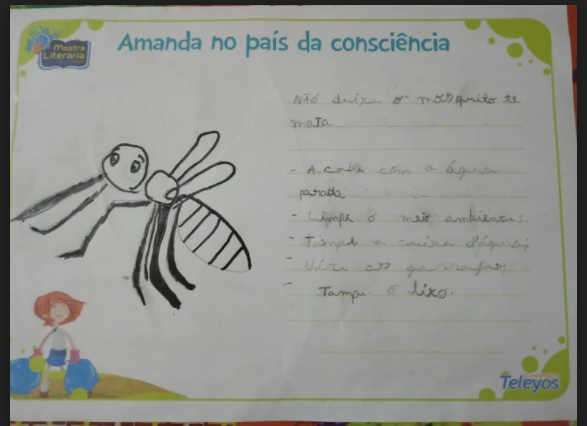 Mostra
Literária
Amanda no país da consciência
Não deixe o mosquito te
mata
- Acabe com a água
parada
- Limpe o meio ambiente;
- Tampe a caixa d'água;
- Vire as garrafas;
- Tampe o lixo.
Teleyos